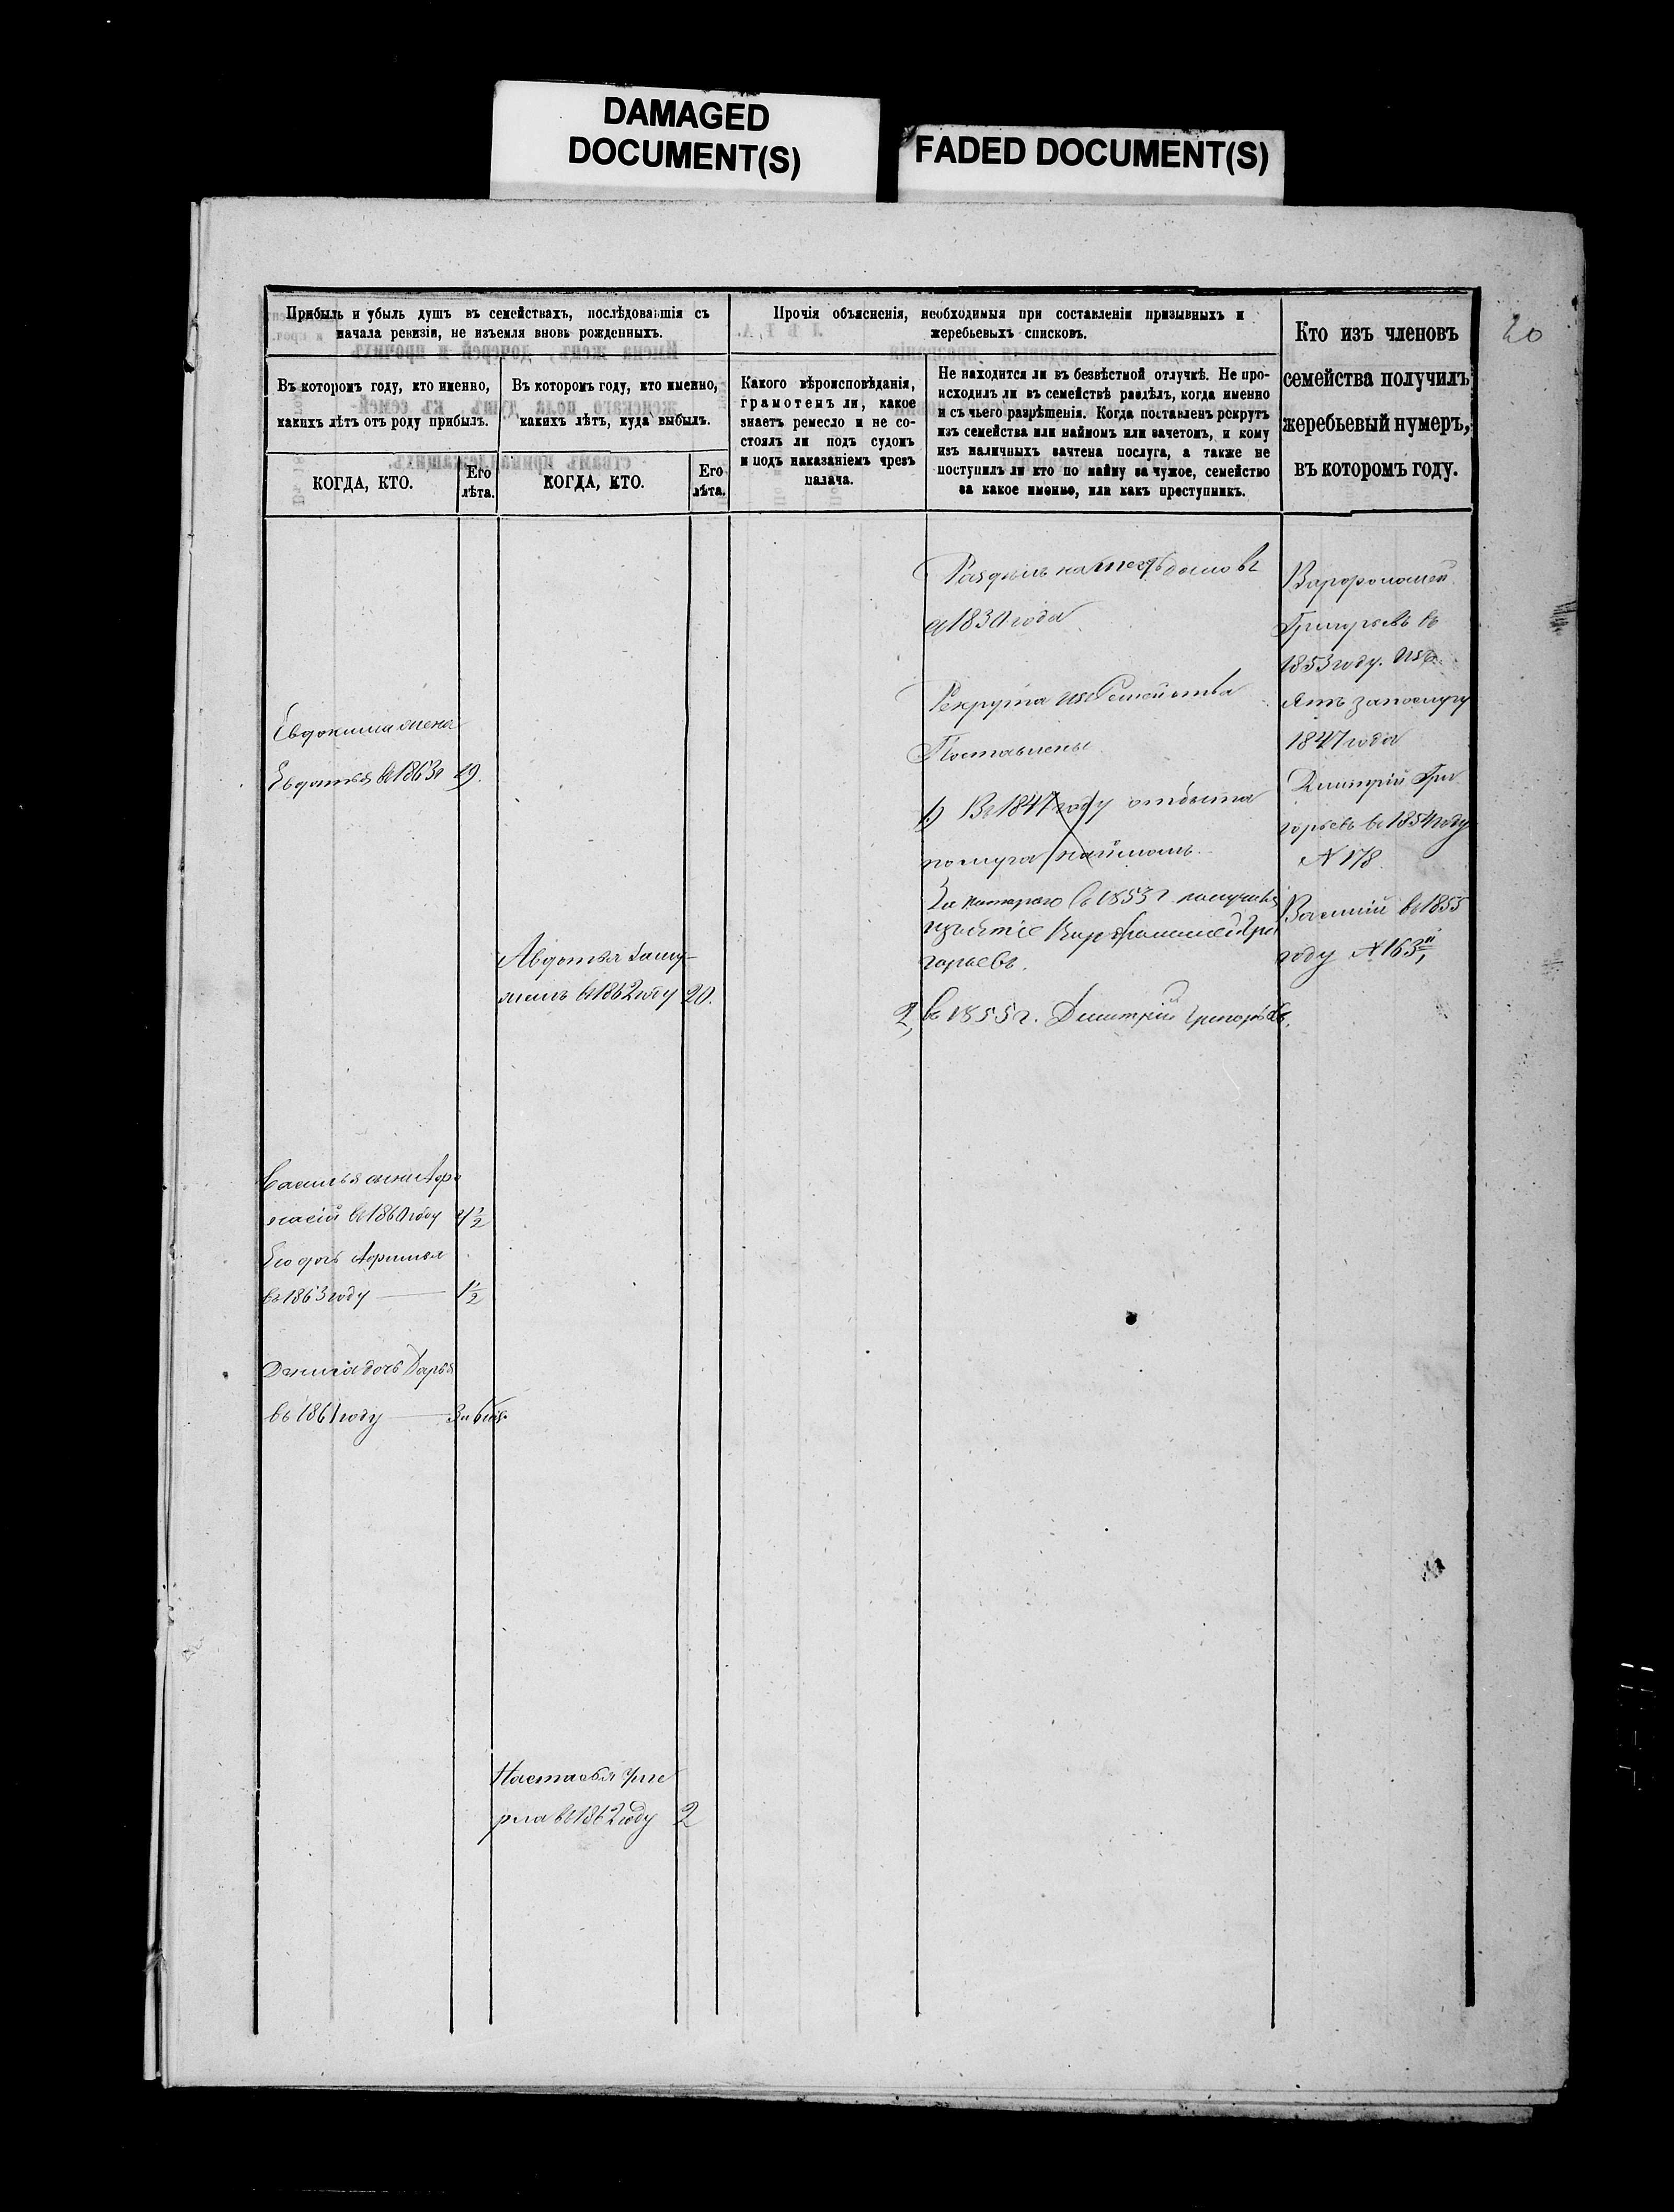 DAMAGED
DOCUMENT(S)
FADED DOCUMENT(S)
20
Прибыль и убыль душъ въ семействахъ, послѣдовавшія съ
начала ревизіи, не изъемля вновь рожденныхъ.
Въ которомъ году, кто именно,
какихъ лѣтъ отъ роду прибылъ.
Въ которомъ году, кто именно,
какихъ лѣтъ, куда выбылъ.
КОГДА, КТО.
Его
лѣта.
КОГДА, КТО.
Его
лѣта.
Прочія объясненія, необходимыя при составленіи призывныхъ и
жеребьевыхъ списковъ.
Какого вѣроисповѣданія,
грамотенъ ли, какое
знаетъ ремесло и не со-
стоялъ ли подъ судомъ
и подъ наказаніемъ чрезъ
палача.
Не находится ли въ безвѣстной отлучкѣ. Не про-
исходилъ ли въ семействѣ раздѣлъ, когда именно
и съ чьего разрѣшенія. Когда поставленъ рекрутъ
изъ семейства или наймомъ или зачетомъ, и кому
изъ наличныхъ зачтена послуга, а также не
поступилъ ли кто по найму за чужое, семейство
за какое именно, или какъ преступникъ.
Кто изъ членовъ
семейства получилъ
жеребьевый нумеръ,
въ которомъ году.
Евдокима жена
Евдотья въ 1863 г 19.
Василья сынъ Афо
насій въ 1860 году 4 1/2
Его дочь Афимья
въ 1863 году — 1 1/2
Данила дочь Дарья
въ 1861 году — 3 и 6 мѣс.
Авдотья заму-
жемъ въ 1862 году 20.
Настасья уме
рла въ 1862 году 2
Раздѣлъ на домовъ
съ 1830 года
Рекрута изъ Семейства
Поставлены
1) Въ 1847 году отбыта
послуга наймомъ.
За котораго въ 1853 г. получилъ
изъятіе Варфоломей Гри
горьевъ.
2, въ 1855 г. Дмитрій Григорьевъ.
Варфоломей
Григорьевъ въ
1853 году. Изъ
ятъ за послугу
1847 года
Дмитрій Гри
горьевъ въ 1854 году
N 178.
Василій въ 1855
году N 163й,